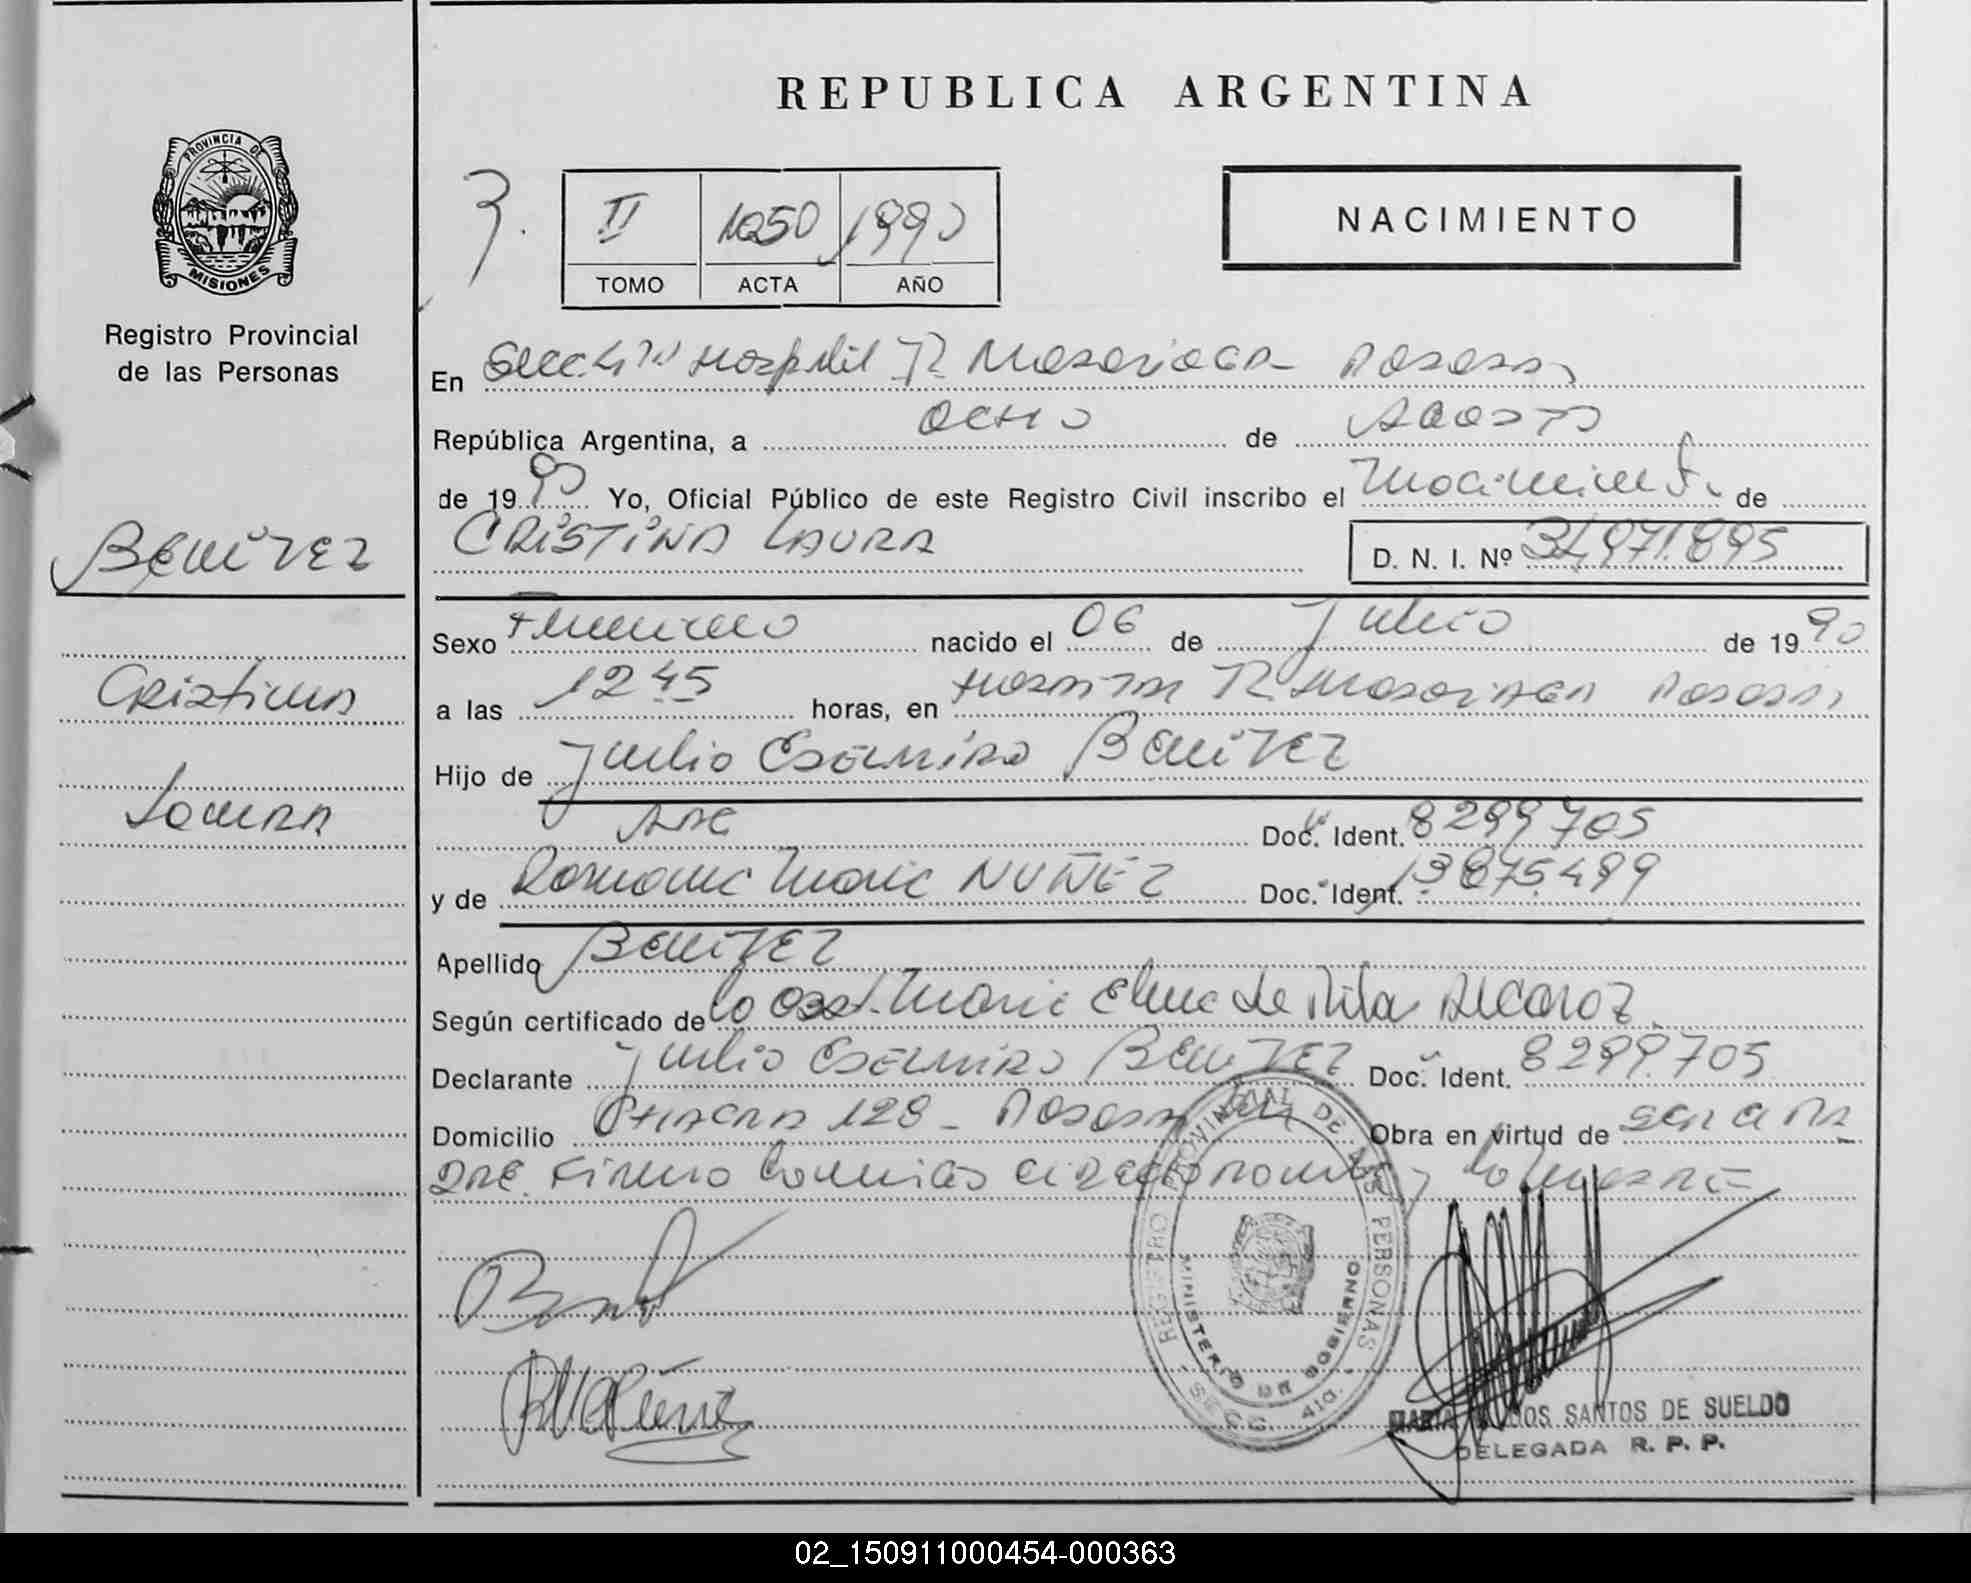 REPUBLICA ARGENTINA
PROVINCIA DE
MISIONES
Registro Provincial
de las Personas
3.
II 1250 1990
TOMO ACTA AÑO
NACIMIENTO
En Hospital R. Madariaga Posadas
República Argentina, a OCHO de AGOSTO
de 1990 Yo, Oficial Público de este Registro Civil inscribo el Nacimiento de
CRISTINA LAURA
D. N. I. Nº 34.971.895
BENITEZ
Cristina
Laura
Sexo Femenino nacido el 06 de Julio de 1990
a las 12 45 horas, en Hospital R. Madariaga Posadas
Hijo de Julio Edelmiro BENITEZ
Arg Doc. Ident. 8299705
y de Romana Maria NUÑEZ Doc. Ident. 13.875.499
Apellido BENITEZ
Según certificado de la Obst. Maria Elena de Alcaraz
Declarante Julio Edelmiro BENITEZ Doc. Ident. 8299.705
Domicilio Chacra 128 - Posadas Obra en virtud de ser el
Padre. Firman conmigo el declarante y la madre
REGISTRO PROVINCIAL DE LAS PERSONAS
MINISTERIO DE GOBIERNO
SECC. 4ta.
MARIA DOS SANTOS DE SUELDO
DELEGADA R. P. P.
02_150911000454-000363